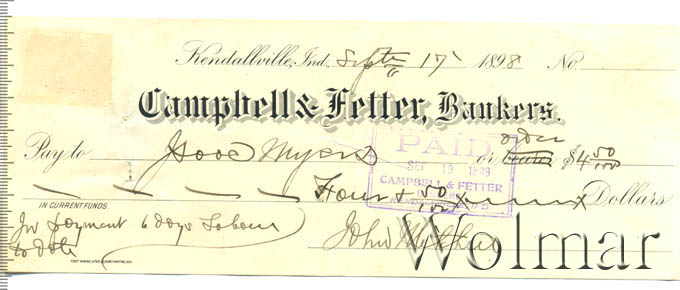 Kendallville, Ind. Sept 17 1898 No.
Campbell & Fetter, Bankers.
Pay to Isaac Myers or order $4 50/100
Four + 50/100 Dollars
PAID
SEP 19 1898
CAMPBELL & FETTER
IN CURRENT FUNDS.
In payment 6 days Labour
to date
John
Wolmar